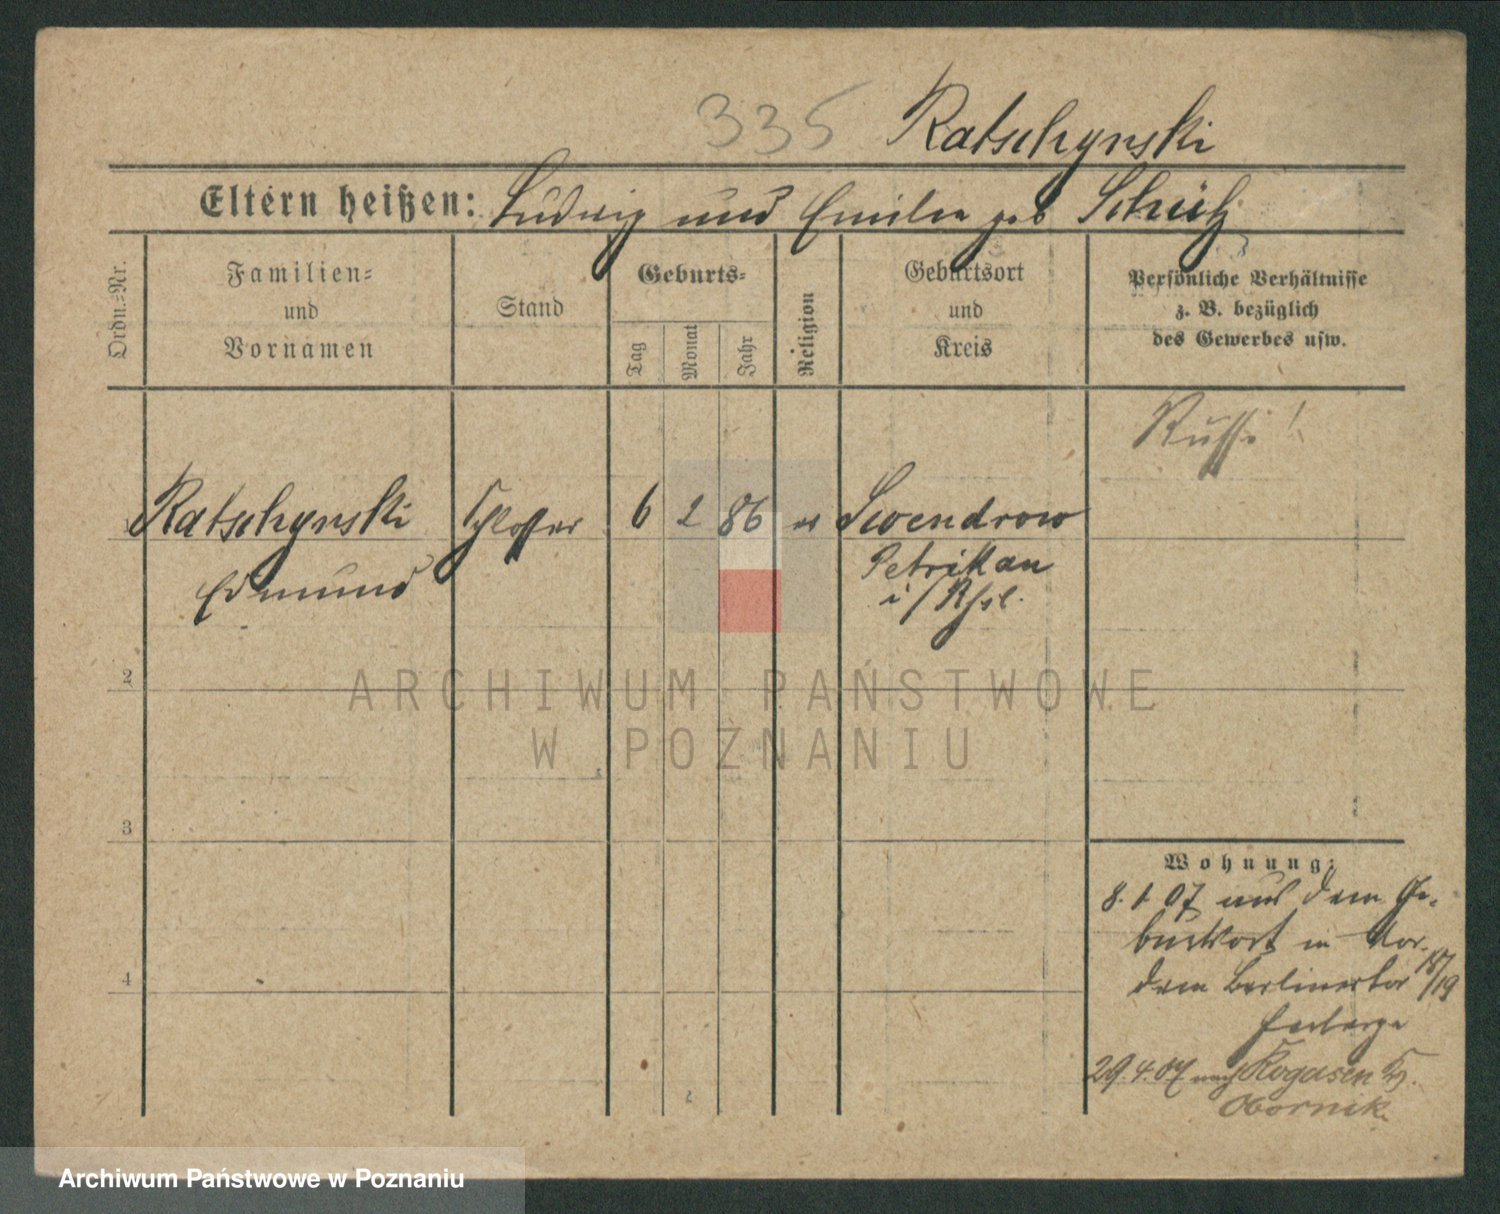 335 Ratschynski
Eltern heißen: Ludwig und Emilie geb Schütz
Ordn.=Nr.
Familien=
und
Vornamen
Stand
Geburts=
Tag
Monat
Jahr
Religion
Geburtsort
und
Kreis
Persönliche Verhältnisse
z. B. bezüglich
des Gewerbes usw.
Russe!
1 Ratschynski Schlosser 6 2 86 ev Swendrow
Edmund
Petrikau
i/Rssl.
2
3
4
Wohnung:
8. 1 07 aus dem Ge-
burtsort in Vor
dem Berlinertor 18/19
Herberge
29.4.07 nach Rogasen Kr.
Obornik.
ARCHIWUM PAŃSTWOWE
W POZNANIU
Archiwum Państwowe w Poznaniu